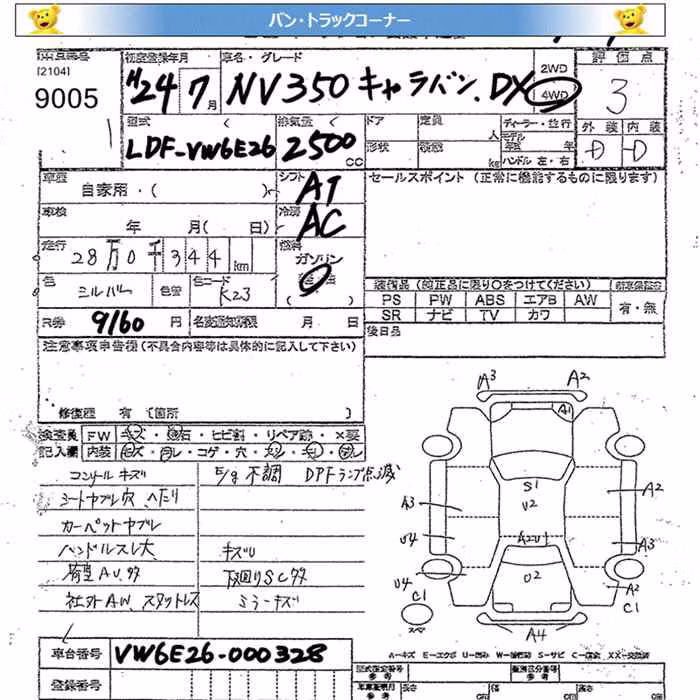 バン・トラックコーナー
[2104]
9005
初度登録年月
H24 7月
車名・グレード
NV350キャラバン.DX
2WD
4WD
評価点
3
外装 内装
D D
型式
LDF-VW6E26
排気量
2500 CC
ドア
形状
定員 人
積載 kg
ディーラー・並行
モデル
年式 年
ハンドル 左・右
車歴
自家用・( )
シフト
AT
車検
年 月( 日)
冷房
AC
走行
28万0千344km
燃料
ガソリン
色
シルバー
色コード
K23
R券
9160円
名変通知期限 月 日
セールスポイント (正常に機能するものに限ります)
装備品 (純正品に限り○をつけてください)
PS PW ABS エアB AW
SR ナビ TV カワ
有・無
後日品
注意事項申告欄(不具合内容等は具体的に記入して下さい)
修復歴 有 〔箇所 〕
検査員
記入欄
FW キズ・飛石・ヒビ割・リペア跡・×要
内装 キズ・コゲ・穴
コンソールキズ
シートヤブレ穴 へたり
カーペットヤブレ
ハンドルスレ大
荷室AU.ササ
社外AW.スタットレス
E/g不調 DPFランプ点滅
キズU
下廻りSCササ
ミラーキズ
A3
A2
A1
S1
U2
A2
A3
U4
A2U1
A3
U4
U2
A2
C1
C1
スペア
A4
A=キズ E=エクボ U=凹み W=補修跡 S=サビ C=腐蝕 XX=交換済
車台番号
VW6E26-000328
登録番号
型式指定番号
参考
類別区分番号
参考
長さ cm
幅 cm
高さ cm